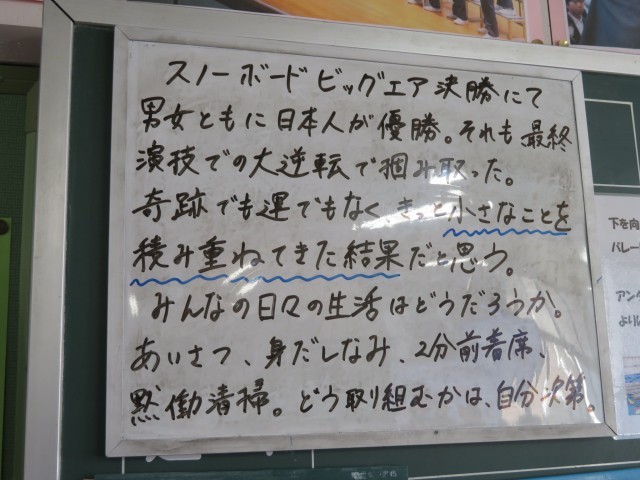 スノーボードビッグエア決勝にて
男女ともに日本人が優勝。それも最終
演技での大逆転で掴み取った。
奇跡でも運でもなく、きっと小さなことを
積み重ねてきた結果だと思う。
みんなの日々の生活はどうだろうか。
あいさつ、身だしなみ、2分前着席、
黙働清掃。どう取り組むかは、自分次第。
下を向
バレー
アンタ
よりに